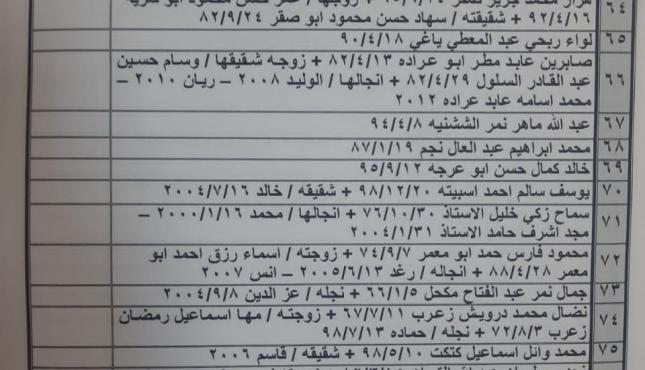 ٦٤ ٩٢/٤/١٦ + شقيقته / سهاد حسن محمود ابو صقر ٨٢/٩/٢٤
٦٥ لواء ربحي عبد المعطي ياغي ٩٠/٤/١٨
صابرين عابد مطر ابو عراده ٨٢/٤/١٣ + زوجة شقيقها / وسام حسين
٦٦ عبد القادر السلول ٨٢/٤/٢٩ + انجالها / الوليد ٢٠٠٨ – ريان ٢٠١٠ –
محمد اسامه عابد عراده ٢٠١٢
٦٧ عبد الله ماهر نمر الششنيه ٩٤/٤/٨
٦٨ محمد ابراهيم عبد العال نجم ٨٧/١/١٩
٦٩ خالد كمال حسن ابو عرجه ٩٥/٩/١٢
٧٠ يوسف سالم احمد اسبيته ٩٨/١٢/٢٠ + شقيقه / خالد ٢٠٠٤/٧/١٦
٧١ سماح زكي خليل الاستاذ ٧٦/١٠/٣٠ + انجالها / محمد ٢٠٠٠/١/١٦ –
مجد اشرف حامد الاستاذ ٢٠٠٤/١/٣١
٧٢ محمود فارس حمد ابو معمر ٧٤/٩/٧ + زوجته / اسماء رزق احمد ابو
معمر ٨٨/٤/٢٨ + انجاله / رغد ٢٠٠٥/٦/١٣ – انس ٢٠٠٧
٧٣ جمال نمر عبد الفتاح مكحل ٦٦/١/٥ + نجله / عز الدين ٢٠٠٤/٩/٨
٧٤ نضال محمد درويش زعرب ٦٧/٧/١١ + زوجته / مها اسماعيل رمضان
زعرب ٧٢/٨/٣ + نجله / حماده ٩٨/٧/١٣
٧٥ محمد وائل اسماعيل كتكت ٩٨/٥/١٠ + شقيقه / قاسم ٢٠٠٦